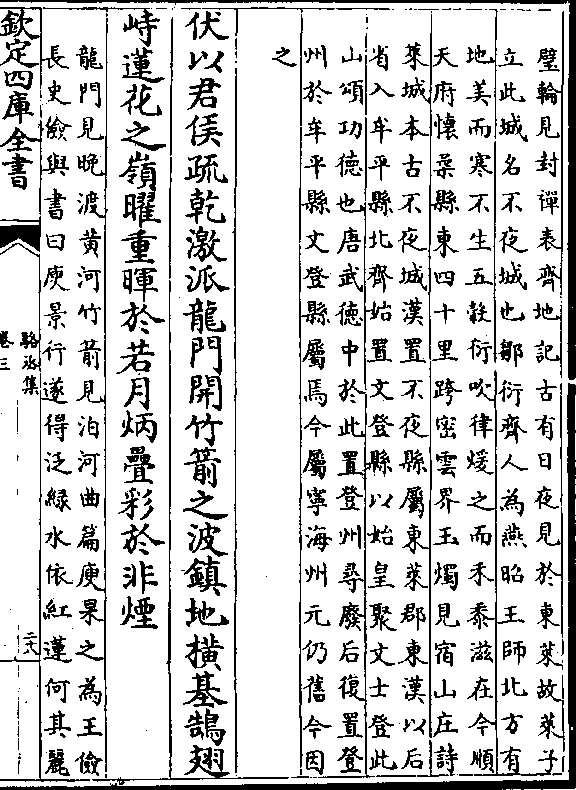 璧輪見封禪表齊地記古有日夜見於東萊故萊子
立此城名不夜城也鄒衍齊人為燕昭王師北方有
地美而寒不生五穀衍吹律煖之而禾黍滋在今順
天府懷柔縣東四十里跨密雲界玉燭見宿山庄詩
萊城本古不夜城漢置不夜縣屬東萊郡東漢以后
省入牟平縣北齊始置文登縣以始皇聚文士登此
山頌功德也唐武德中於此置登州尋廢后復置登
州於牟平縣文登縣屬焉今屬寧海州元仍舊今因
之
伏以君侯疏乾激派龍門開竹箭之波鎮地橫基鵠翅
峙蓮花之嶺曜重暉於若月炳疊彩於非煙
龍門見晚渡黄河竹箭見泊河曲篇庾杲之為王儉
長史儉與書曰庾景行遂得泛緑水依紅蓮何其麗
欽定四庫全書
駱丞集
卷三
二八